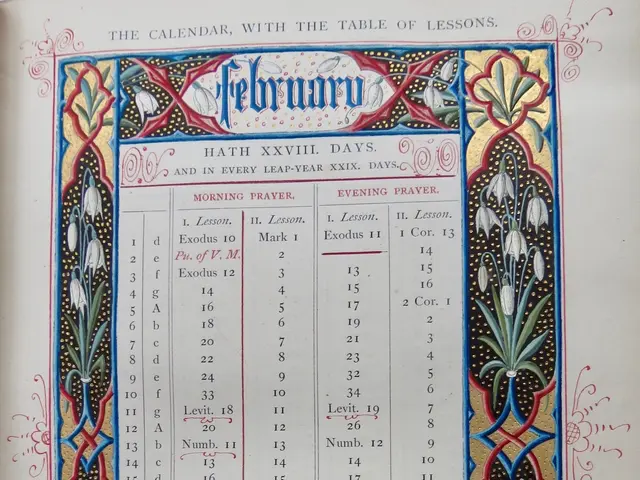 THE CALENDAR, WITH THE TABLE OF LESSONS.
february
HATH XXVIII. DAYS.
AND IN EVERY LEAP-YEAR XXIX. DAYS.
MORNING PRAYER. EVENING PRAYER.
I. Lesson. II. Lesson. I. Lesson. II. Lesson.
1 d Exodus 10 Mark 1 Exodus 11 1 Cor. 13
2 e Pu. of V. M. 2 14
3 f Exodus 12 3 13 15
4 g 14 4 15 16
5 A 16 5 17 2 Cor. 1
6 b 18 6 19 2
7 c 20 7 21 3
8 d 22 8 23 4
9 e 24 9 32 5
10 f 33 10 34 6
11 g Levit. 18 11 Levit. 19 7
12 A 20 12 26 8
13 b Numb. 11 13 Numb. 12 9
14 c 13 14 14 10
15 d 16 15 17 11